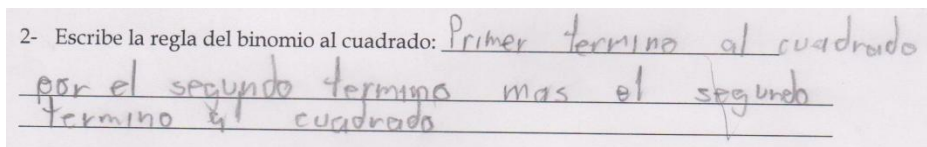 2- Escribe la regla del binomio al cuadrado: Primer termino al cuadrado
por el segundo termino mas el segundo
termino al cuadrado